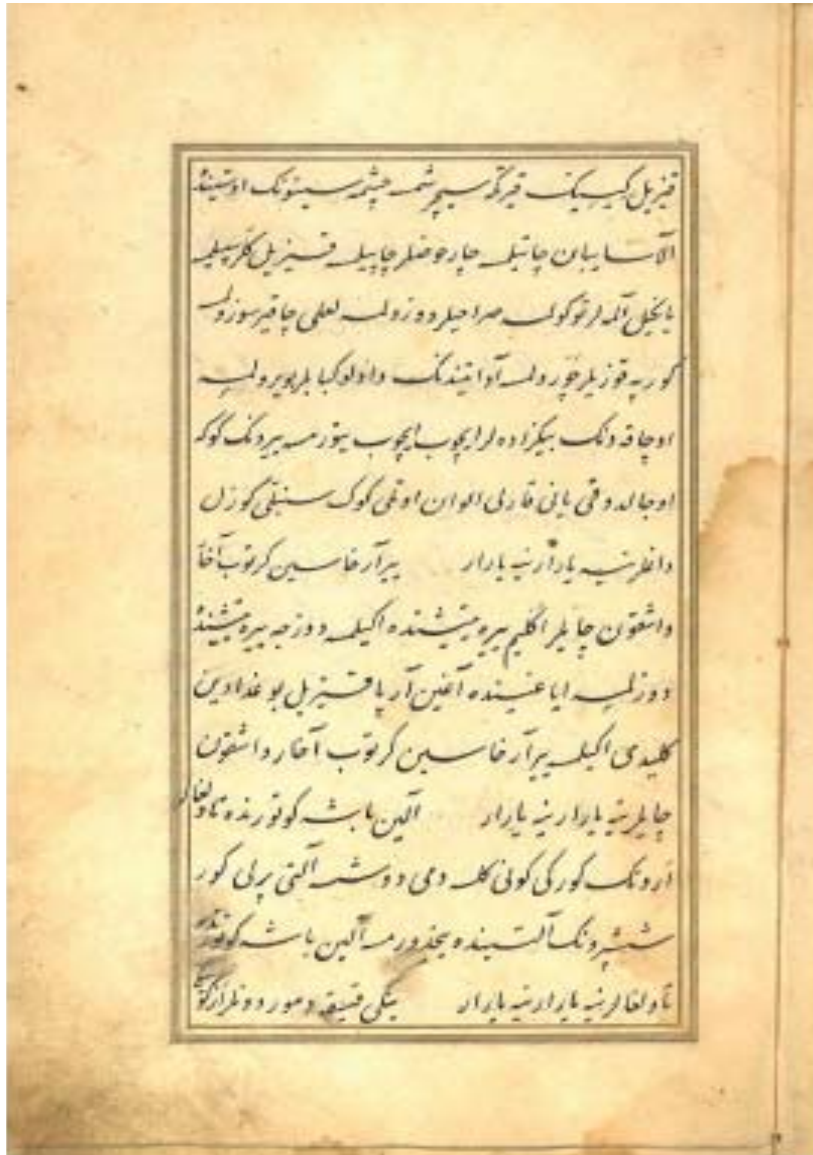 قیزیل کییک قیرکه سیچرشمه چشمه سینونک اوستینده
الا سایبان چاتیلمه چارحوضلر چاپیلمه قیزیل
یانکیل آلمه لر توکولمه صراحیلر دوزولمه لعلی چاقیر سوزولمه
کورپه قوزیلر چورولمه آوا تیندنک واولو کبابلر بویرولمه
اوجاقدونک بیکزاده لر ایچوب ایچوب یتورمه یرونک کوکه
اوجالدوقی یانی قارلی الوان اوتلی کوک سنبلی کوزل
داغلر نیه یارار نیه یارار ییرآرخاسین کرتوب آخار
واشقون چایلر اکلیم ییره میتشنده اکیلمه دوزجه ییره میتشنده
دوزلمه ایاغینده آغین آرپا قیزیل بوغدادین
کلیدی اکیلمه ییرآرخاسین کرتوب آخار واشقون
چایلر نیه یارار نیه یارار آلین باشه کوتورنده تاولغالر
ارونک کورکی کونی کله دمی دوشه آلتی پرلی کور
ششپرونک آلتینده یخدورمه آلین باشه کوتورنده
تاولغالر نیه یارار نیه یارار دمور دونلر